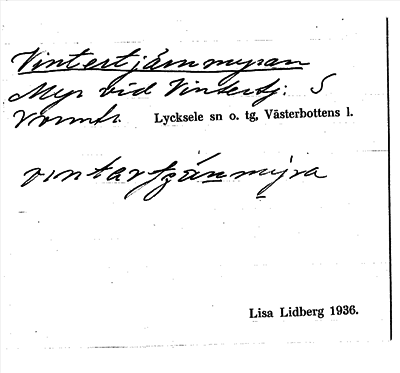 Vintertjärnmyran
Myr vid Vintertj: S
Vormtr. Lycksele sn o. tg, Västerbottens l.
vintartjánmýra
Lisa Lidberg 1936.